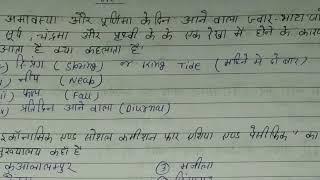 अमावस्या और पूर्णिमा के दिन आने वाला ज्वार-भाटा जो
सूर्य, चंद्रमा और पृथ्वी के के एक रेखा में होने के कारण
आता है क्या कहलाता है
(Spring) or King Tide (महिने में दो बार)
नीप (Neab)
(Fall)
प्रतिदिन आने वाला (Diurnal)
इकॉनामिक एण्ड सोशल कमीशन फार एशिया एण्ड पैसेफिक" का
मुख्यालय कहाँ है
कुआलालम्पुर ③ मनीला